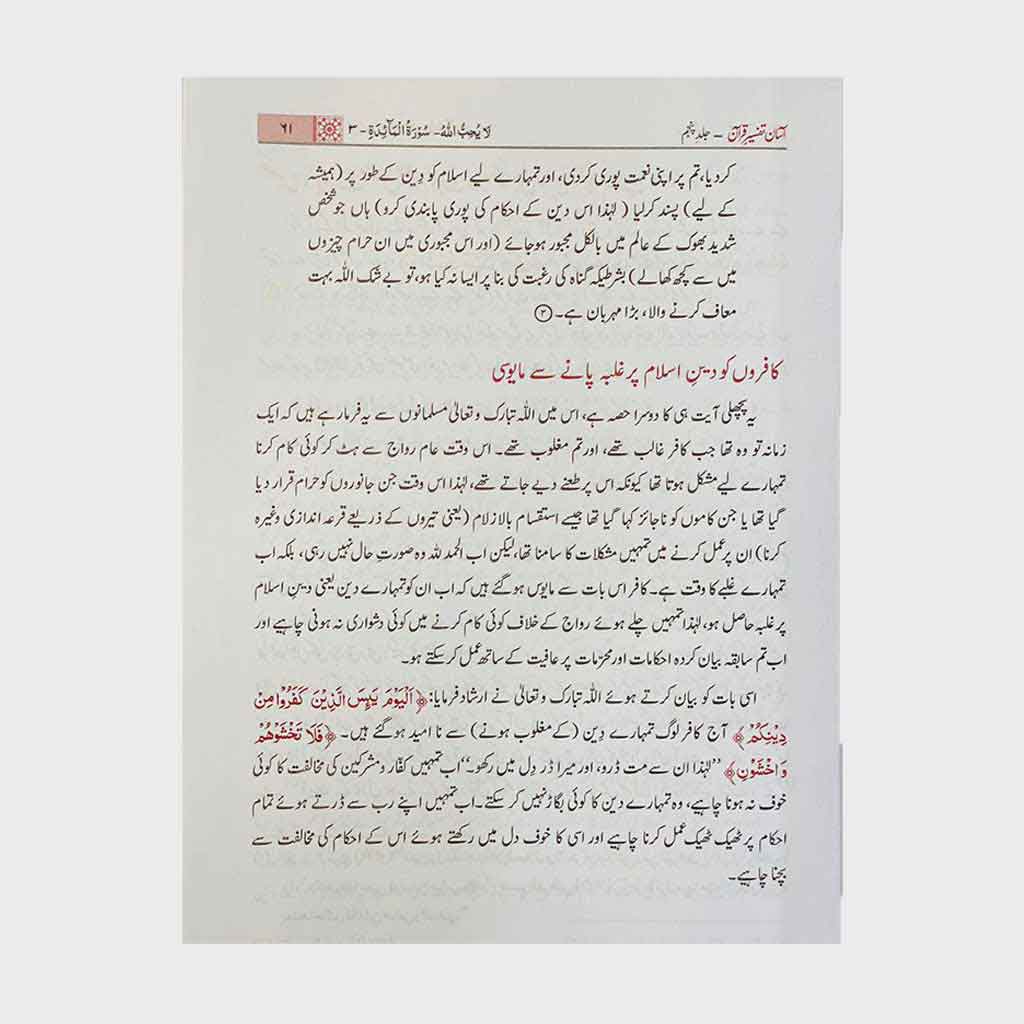 آسان تفسیر قرآن – جلد پنجم
لَا يُحِبُّ اللهُ - سُوْرَةُ الْمَآئِدَةِ - ۳
۶۱
کردیا، تم پر اپنی نعمت پوری کردی، اور تمہارے لیے اسلام کو دِین کے طور پر (ہمیشہ
کے لیے) پسند کرلیا (لہٰذا اس دین کے احکام کی پوری پابندی کرو) ہاں جو شخص
شدید بھوک کے عالم میں بالکل مجبور ہوجائے (اور اس مجبوری میں ان حرام چیزوں
میں سے کچھ کھالے) بشرطیکہ گناہ کی رغبت کی بنا پر ایسا نہ کیا ہو، تو بے شک اللہ بہت
معاف کرنے والا، بڑا مہربان ہے۔ ③
کافروں کو دینِ اسلام پر غلبہ پانے سے مایوسی
یہ پچھلی آیت ہی کا دوسرا حصہ ہے، اس میں اللہ تبارک و تعالیٰ مسلمانوں سے یہ فرمارہے ہیں کہ ایک
زمانہ تو وہ تھا جب کافر غالب تھے، اور تم مغلوب تھے۔ اس وقت عام رواج سے ہٹ کر کوئی کام کرنا
تمہارے لیے مشکل ہوتا تھا کیونکہ اس پر طعنے دیے جاتے تھے، لہٰذا اس وقت جن جانوروں کو حرام قرار دیا
گیا تھا یا جن کاموں کو ناجائز کہا گیا تھا جیسے استقسام بالازلام (یعنی تیروں کے ذریعے قرعہ اندازی وغیرہ
کرنا) ان پر عمل کرنے میں تمہیں مشکلات کا سامنا تھا، لیکن اب الحمد للہ وہ صورتِ حال نہیں رہی، بلکہ اب
تمہارے غلبے کا وقت ہے۔ کافر اس بات سے مایوس ہوگئے ہیں کہ اب ان کو تمہارے دین یعنی دینِ اسلام
پر غلبہ حاصل ہو، لہٰذا تمہیں چلے ہوئے رواج کے خلاف کوئی کام کرنے میں کوئی دشواری نہ ہونی چاہیے اور
اب تم سابقہ بیان کردہ احکامات اور محرّمات پر عافیت کے ساتھ عمل کرسکتے ہو۔
اسی بات کو بیان کرتے ہوئے اللہ تبارک و تعالیٰ نے ارشاد فرمایا: ﴿اَلْيَوْمَ يَئِسَ الَّذِيْنَ كَفَرُوْا مِنْ
دِيْنِكُمْ﴾ آج کافر لوگ تمہارے دِین (کے مغلوب ہونے) سے نا امید ہوگئے ہیں۔ ﴿فَلَا تَخْشَوْهُمْ
وَاخْشَوْنِ﴾ ’’لہٰذا ان سے مت ڈرو، اور میرا ڈر دِل میں رکھو۔‘‘ اب تمہیں کفّار و مشرکین کی مخالفت کا کوئی
خوف نہ ہونا چاہیے، وہ تمہارے دین کا کوئی بگاڑ نہیں کرسکتے۔ اب تمہیں اپنے رب سے ڈرتے ہوئے تمام
احکام پر ٹھیک ٹھیک عمل کرنا چاہیے اور اسی کا خوف دل میں رکھتے ہوئے اس کے احکام کی مخالفت سے
بچنا چاہیے۔